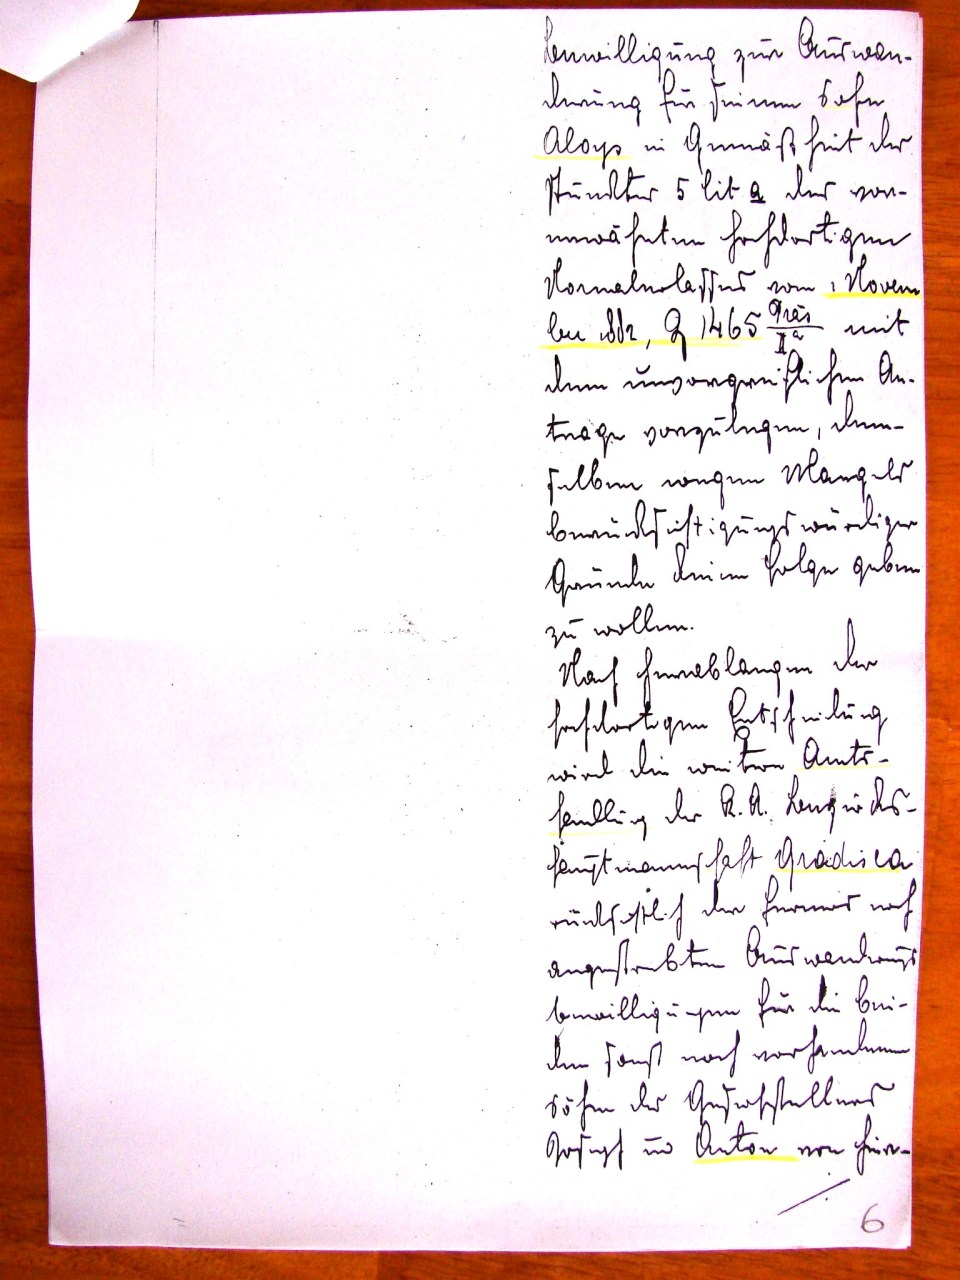 bewilligung zur Auswan-
derung für seinen Sohn
Aloys in Gemäßheit des
Punktes 5 lit a des vor-
erwähnten hochdortigen
Normalerlasses vom 1 Novem
ber 882, Z 1465 Präs/IIa mit
dem unvorgreiflichen An-
trage vorzulegen, dem-
selben wegen Mangels
berücksichtigungswürdiger
Gründe keine Folge geben
zu wollen.
Nach Herablangen der
hochdortigen Entscheidung
wird die weitere Amts-
handlung der K. K. Bezirks-
hauptmannschaft Gradisca
rücksichtlich der ferner noch
angestrebten Auswanderungs
bewilligungen für die bei-
den sonst noch vorhandenen
Söhne des Gesuchstellers
Josef und Anton von hier-
6